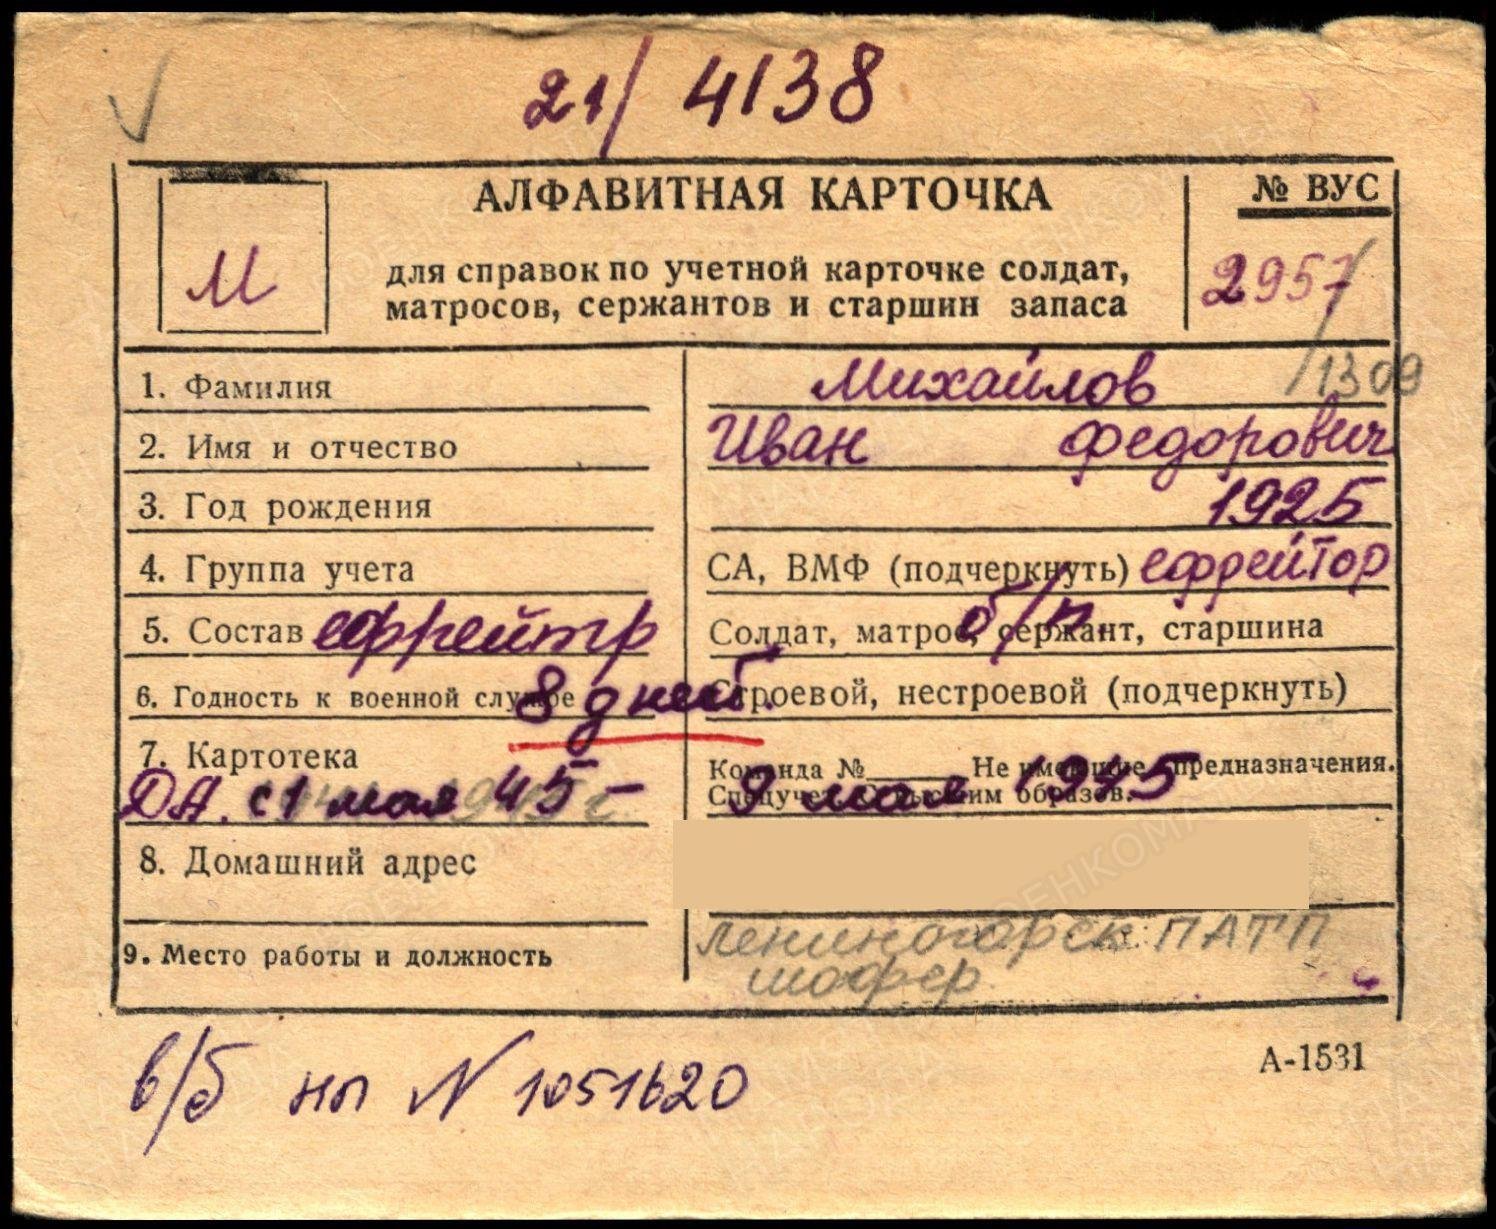 21/ 4138
АЛФАВИТНАЯ КАРТОЧКА
№ ВУС
М
для справок по учетной карточке солдат,
матросов, сержантов и старшин запаса
2957
/1309
1. Фамилия Михайлов
2. Имя и отчество Иван Федорович
3. Год рождения 1925
4. Группа учета СА, ВМФ (подчеркнуть) ефрейтор
5. Состав ефрейтр Солдат, матрос, сержант, старшина
б/п.
6. Годность к военной службе Строевой, нестроевой (подчеркнуть)
8 дней.
7. Картотека Команда №______ Не имеющие предназначения.
Спецучет
образов.
ДА. с 1 мая 45 – 9 мая 1945
8. Домашний адрес
9. Место работы и должность Лениногорск ПАТП
шофер
А-1531
в/б нп № 1051620